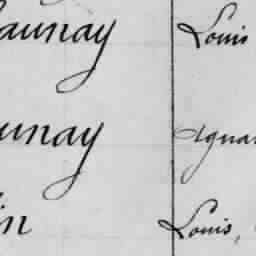 aunay Louis
unay Igna
in Louis,